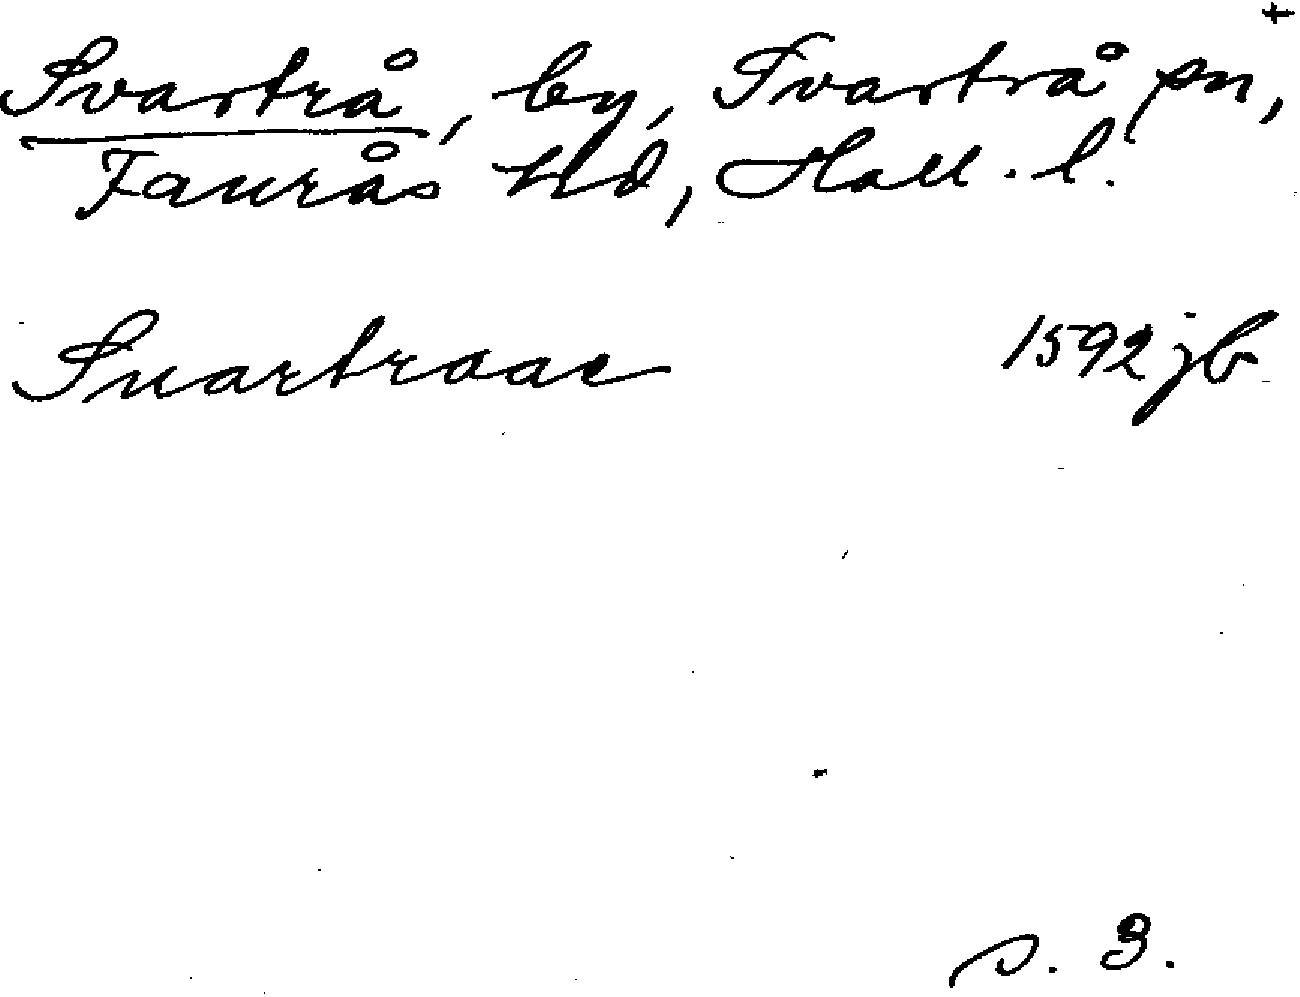 +
Svartrå, by, Svartrå sn,
Faurås hd, Hall. l.
Suartraae 1592 jb
s. 3.